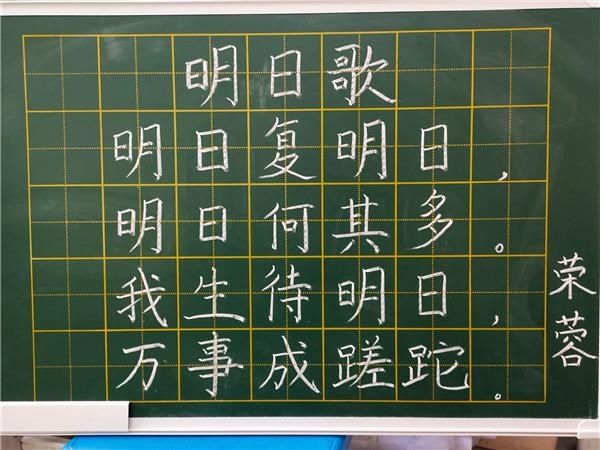 明日歌
明日复明日，
明日何其多。
我生待明日，
万事成蹉跎。
荣蓉